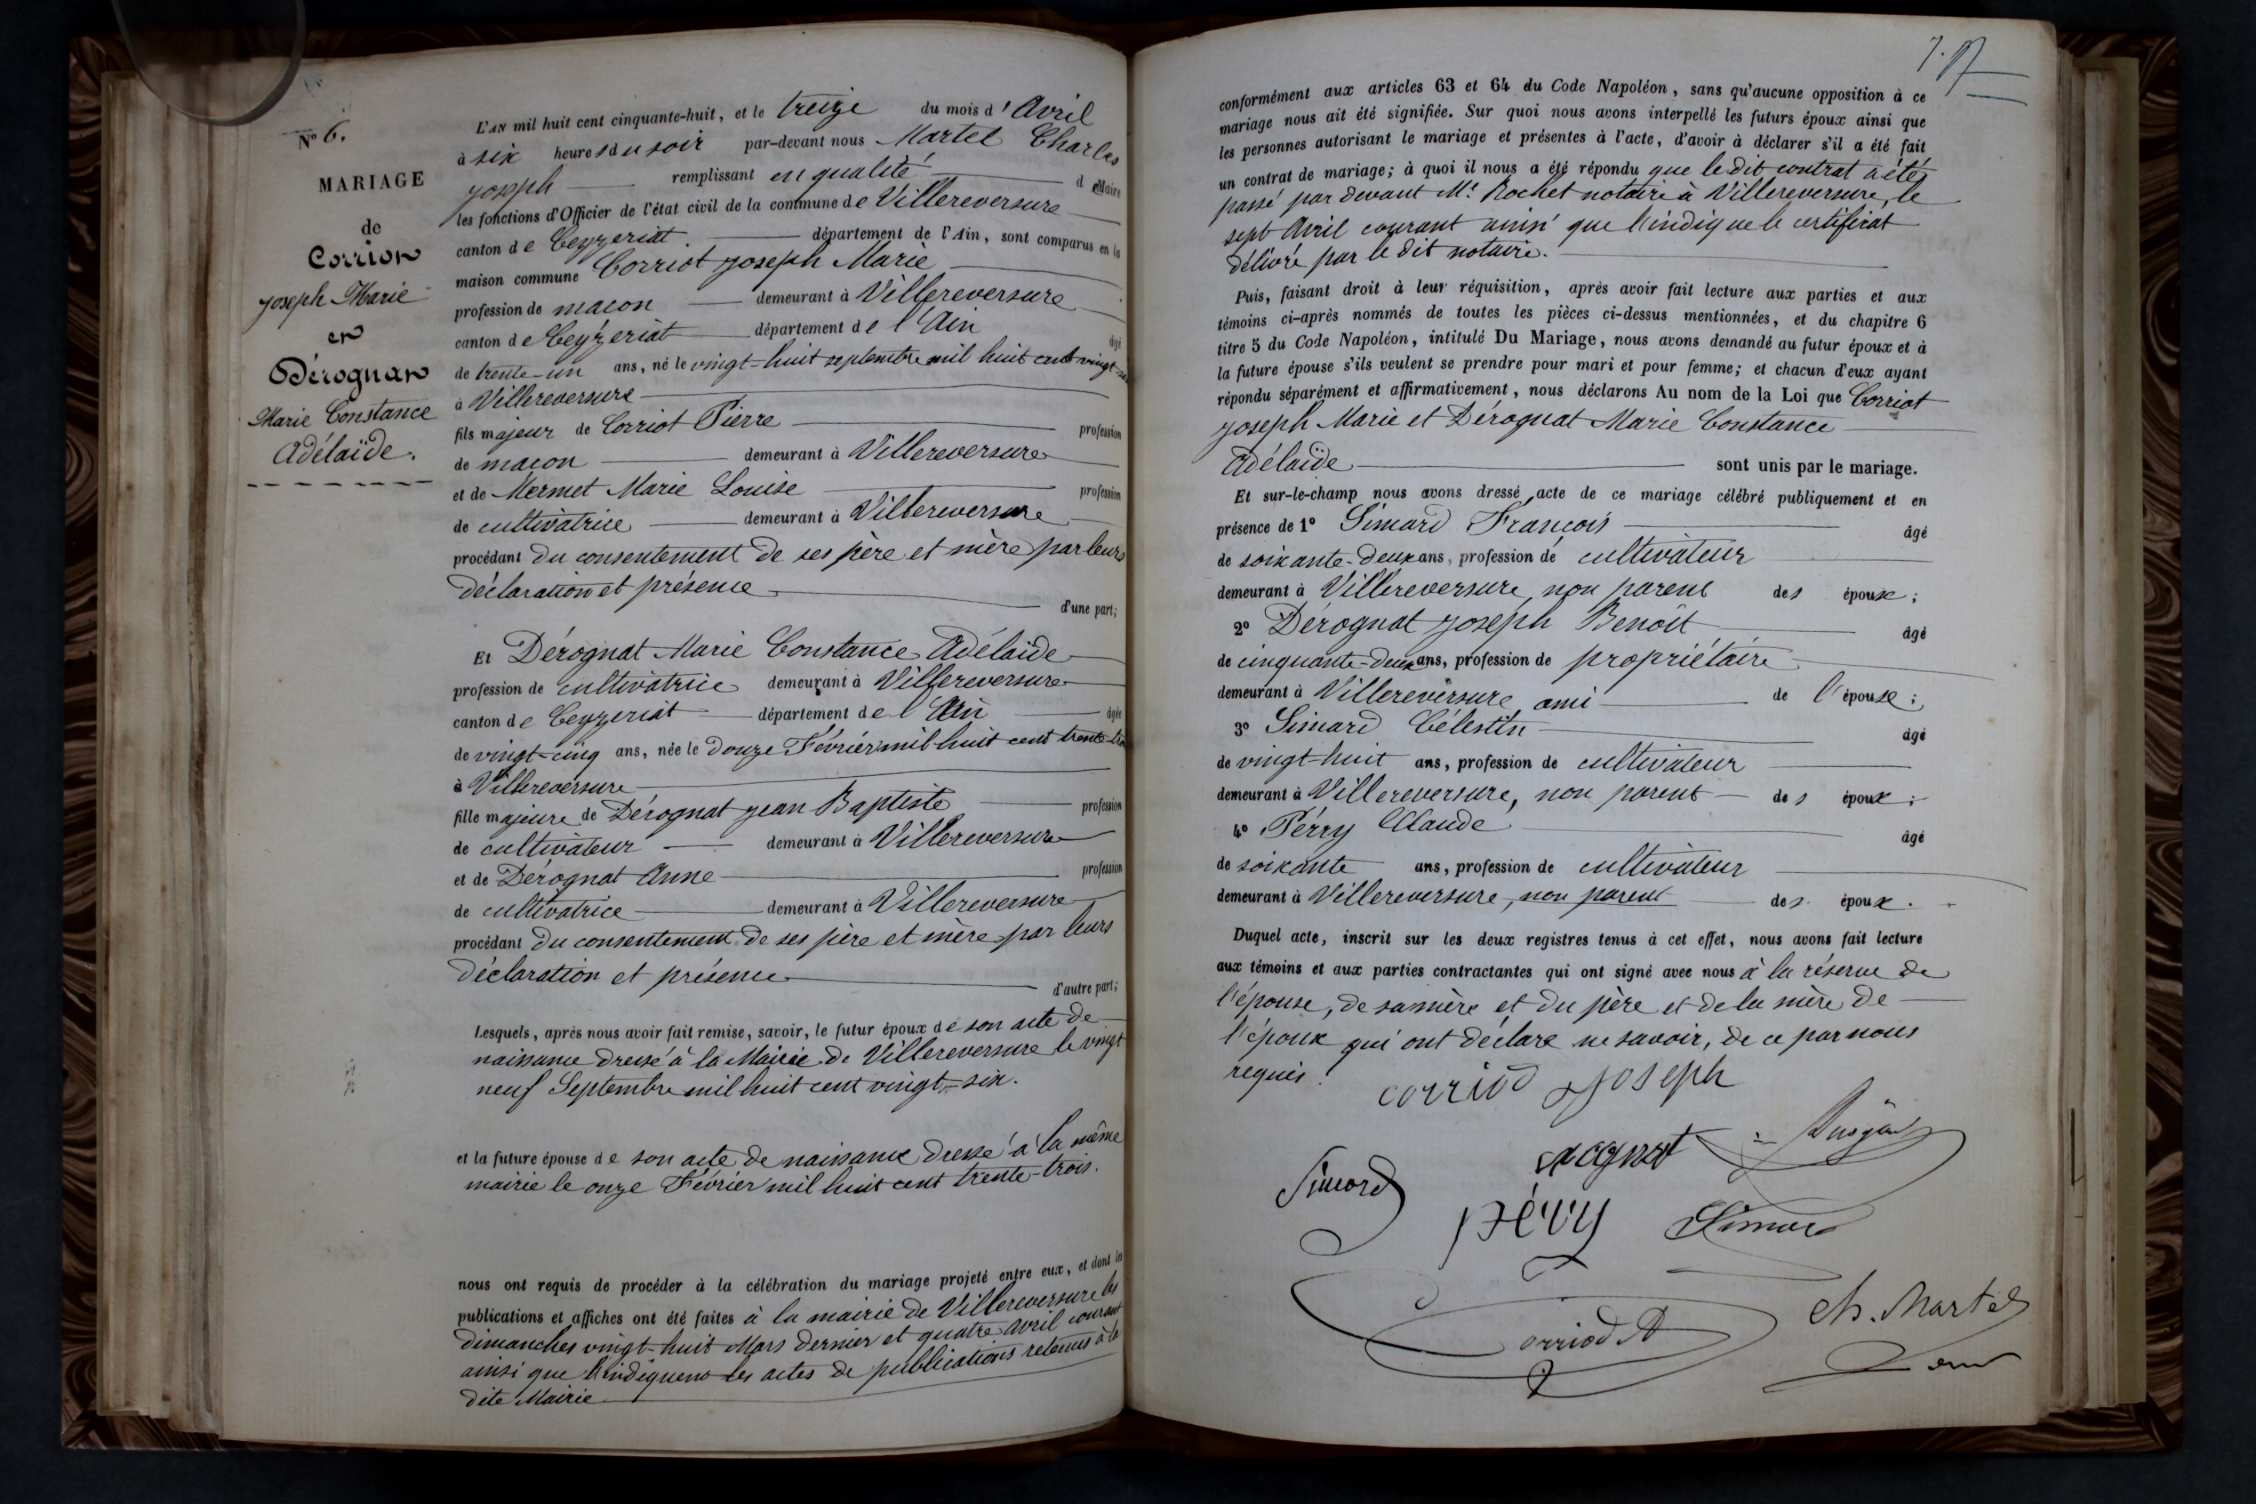 N° 6.
MARIAGE
de
Corriot
Joseph Marie
et
Dérognat
Marie Constance
Adélaïde.
L'AN mil huit cent cinquante-huit, et le treize du mois d'Avril
à six heures du soir par-devant nous Martel Charles
Joseph remplissant en qualité de Maire
les fonctions d'Officier de l'état civil de la commune de Villereversure
canton de Ceyzeriat. département de l'Ain, sont comparus en la
maison commune Corriot Joseph Marie
profession de macon demeurant à Villereversure
canton de Ceyzeriat département de l'Ain âgé
de trente-un ans, né le vingt-huit septembre mil huit cent vingt-six
à Villereversure
fils majeur de Corriot Pierre profession
de macon demeurant à Villereversure
et de Mermet Marie Louise profession
de cultivatrice demeurant à Villereversure
procédant du consentement de ses père et mère par leurs
déclaration et présence
d'une part;
Et Dérognat Marie Constance Adélaïde
profession de cultivatrice demeurant à Villereversure
canton de Ceyzeriat département de l'Ain âgée
de vingt-cinq ans, née le douze Février mil huit cent trente-trois
à Villereversure
fille majeure de Dérognat Jean Baptiste profession
de cultivateur demeurant à Villereversure
et de Dérognat Anne profession
de cultivatrice demeurant à Villereversure
procédant du consentement de ses père et mère par leurs
déclaration et présence
d'autre part;
Lesquels, après nous avoir fait remise, savoir, le futur époux de son acte de
naissance dressé à la Mairie de Villereversure le vingt
neuf Septembre mil huit cent vingt-six.
et la future épouse de son acte de naissance dressé à la même
mairie le onze Février mil huit cent trente-trois.
nous ont requis de procéder à la célébration du mariage projeté entre eux, et dont les
publications et affiches ont été faites à la mairie de Villereversure les
dimanches vingt-huit Mars dernier et quatre Avril courant
ainsi que l'indiquent les actes de publications retenus à la
dite Mairie
7.
conformément aux articles 63 et 64 du Code Napoléon, sans qu'aucune opposition à ce
mariage nous ait été signifiée. Sur quoi nous avons interpellé les futurs époux ainsi que
les personnes autorisant le mariage et présentes à l'acte, d'avoir à déclarer s'il a été fait
un contrat de mariage; à quoi il nous a été répondu que le dit contrat a étéz
passé par devant Me. Rochet notaire à Villereversure, le
sept Avril courant ainsi que l'indique le certificat
délivré par le dit notaire.
Puis, faisant droit à leur réquisition, après avoir fait lecture aux parties et aux
témoins ci-après nommés de toutes les pièces ci-dessus mentionnées, et du chapitre 6
titre 5 du Code Napoléon, intitulé Du Mariage, nous avons demandé au futur époux et à
la future épouse s'ils veulent se prendre pour mari et pour femme; et chacun d'eux ayant
répondu séparément et affirmativement, nous déclarons Au nom de la Loi que Corriot
Joseph Marie et Dérognat Marie Constance
Adélaïde sont unis par le mariage.
Et sur-le-champ nous avons dressé acte de ce mariage célébré publiquement et en
présence de 1° Simard François âgé
de soixante-deux ans, profession de cultivateur
demeurant à Villereversure, non parent des époux;
2° Dérognat Joseph Benoît âgé
de cinquante-deux ans, profession de propriétaire
demeurant à Villereversure ami de l'épouse;
3° Simard Célestin âgé
de vingt-huit ans, profession de cultivateur
demeurant à Villereversure, non parent des époux;
4° Pérry Claude âgé
de soixante ans, profession de cultivateur
demeurant à Villereversure, non parent des époux.
Duquel acte, inscrit sur les deux registres tenus à cet effet, nous avons fait lecture
aux témoins et aux parties contractantes qui ont signé avec nous à la réserve de
l'épouse, de sa mère et du père et de la mère de
l'époux qui ont déclare ne savoir, de ce par nous
requis.
corriod Joseph
Simard
pévy
Simard
Corriod A
Ch. Martel